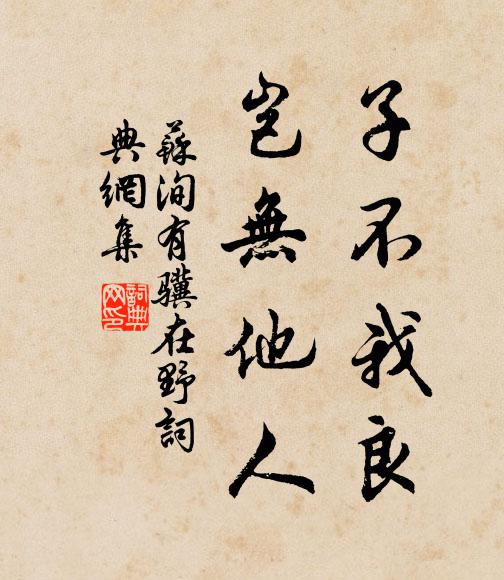 子不我良
豈無他人
蘇洵有驥在野詞
典網集
詞典
网印